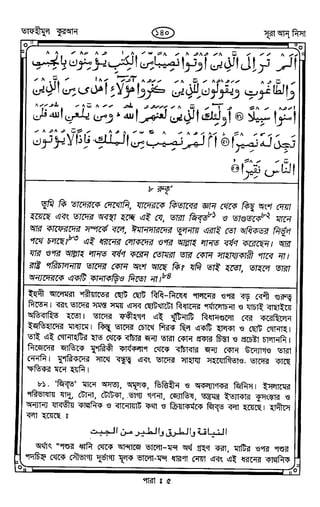 তাফহীমুল কুরআন
১৪০
সূরা আন্ নিসা
أَلَمْ تَرَ إِلَى الَّذِينَ أُوتُوا نَصِيبًا مِّنَ الْكِتٰبِ يُؤْمِنُونَ بِالْجِبْتِ
وَالطَّاغُوتِ وَيَقُولُونَ لِلَّذِينَ كَفَرُوا هٰٓؤُلَاءِ أَهْدٰى مِنَ الَّذِينَ
اٰمَنُوا سَبِيلًا ۝ أُولٰٓئِكَ الَّذِينَ لَعَنَهُمُ اللهُ ۚ وَمَنْ يَّلْعَنِ اللهُ فَلَنْ
تَجِدَ لَهٗ نَصِيرًا ۝ أَمْ لَهُمْ نَصِيبٌ مِّنَ الْمُلْكِ فَإِذًا لَّا يُؤْتُونَ
النَّاسَ نَقِيرًا ۝
৮ রুকূ'
তুমি কি তাদেরকে দেখোনি, যাদেরকে কিতাবের জ্ঞান থেকে কিছু অংশ দেয়া
হয়েছে এবং তাদের অবস্থা হচ্ছে এই যে, তারা জিব্‌ত৮১ ও তাগুতকে৮২ মানে
আর কাফেরদের সম্পর্কে বলে, ঈমানদারদের তুলনায় এরাই তো অধিকতর নির্ভুল
পথে চলছে।৮৩ এই ধরনের লোকদের ওপর আল্লাহ লানত বর্ষণ করেছেন। আর
যার ওপর আল্লাহ লানত বর্ষণ করেন তোমরা তার কোন সাহায্যকারী পাবে না।
রাষ্ট্র পরিচালনায় তাদের কোন অংশ আছে কি? যদি তাই হতো, তাহলে তারা
অন্যদেরকে একটি কানাকড়িও দিতো না।৮৪
ইহুদী আলেমরা শরীয়াতের ছোট ছোট বিধি-নিষেধ পালনের ওপর বড় বেশী গুরুত্ব
দিতেন। বরং তাদের সমস্ত সময় এসব ছোটখাটো বিধানের পর্যালোচনা ও যাচাই বাছাইয়ে
অতিবাহিত হতো। তাদের ফকীহগণ এই খুঁটিনাটি বিধানগুলো বের করেছিলেন
ইজতিহাদের মাধ্যমে। কিন্তু তাদের চোখে শির্‌ক ছিল একটি হালকা ও ছোট গোনাহ।
তাই এই গোনাহটির হাত থেকে বাঁচার জন্য তারা কোন প্রকার চিন্তা ও প্রচেষ্টা চালাননি।
নিজেদের জাতিকে মুশরিকী কার্যকলাপ থেকে বাঁচাবার জন্য কোন উদ্যোগও তারা
নেননি। মুশরিকদের সাথে বন্ধুত্ব এবং তাদের সাহায্য সহযোগিতাও তাদের কাছে
ক্ষতিকর মনে হয়নি।
৮১. 'জিব্‌ত' মানে অসত্য, অমূলক, ভিত্তিহীন ও অকল্যাণকর জিনিস। ইসলামের
পরিভাষায় যাদু, টোনা, টোটকা, ভাগ্য গণনা, জ্যোতিষ, তন্ত্রমন্ত্র ইত্যাকার কুসংস্কার ও
অন্যান্য যাবতীয় কাল্পনিক ও বানোয়াট কথা ও ক্রিয়াকর্মকে জিব্‌ত বলা হয়েছে। হাদীসে
বলা হয়েছে :
النياقة والطرق والطير من الجبت
অর্থাৎ "পশুর ধ্বনি থেকে আন্দাজে ভালো-মন্দ অর্থ গ্রহণ করা, মাটির ওপর পশুর
পদচিহ্ন থেকে সৌভাগ্য দুর্ভাগ্য মূলক ভালো-মন্দ ধারণা নেয়া এবং এই ধরনের কাল্পনিক
পারা : ৫